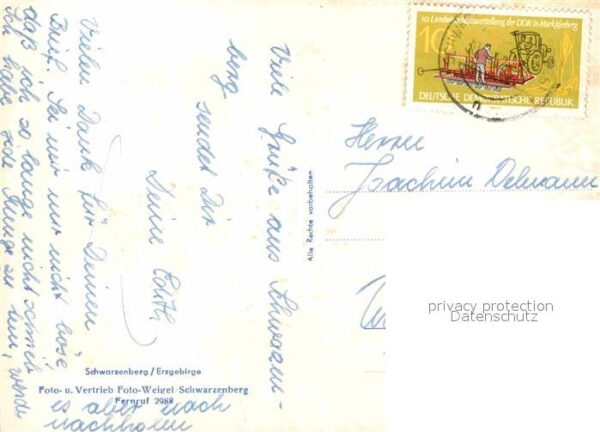 10. Landwirtschaftsausstellung der DDR in Markkleeberg
10
DEUTSCHE DEMOKRATISCHE REPUBLIK
Viele Grüße aus Schwarzen-
berg sendet Dir
Deine Edith
Vielen Dank für Deinen
Brief. Sei mir nur nicht böse
daß ich so lange nicht schrieb
Ich habe jede Menge zu tun, werde
es aber noch
nachholen
Schwarzenberg / Erzgebirge
Foto- u. Vertrieb Foto-Weigel Schwarzenberg
Fernruf 2988
Alle Rechte vorbehalten
Herrn
Joachim Delmann
privacy protection
Datenschutz